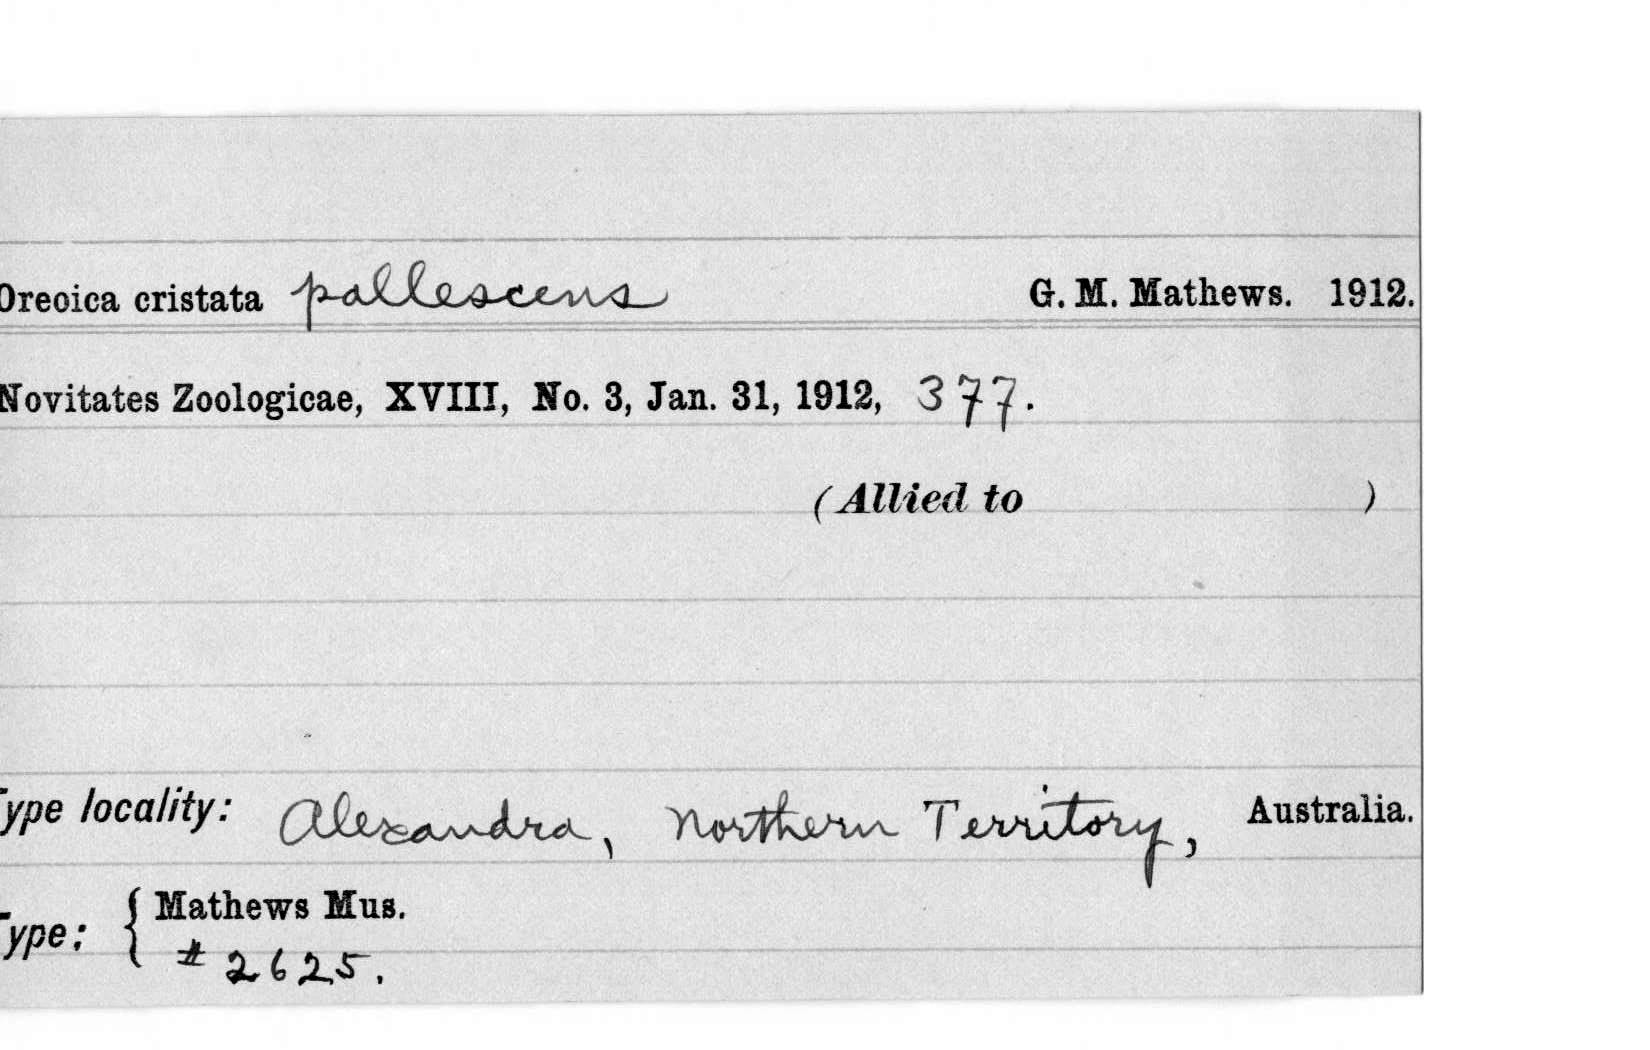 Oreoica cristata pallescens G. M. Mathews. 1912.
Novitates Zoologicae, XVIII, No. 3, Jan. 31, 1912, 377.
(Allied to )
Type locality: Alexandra, Northern Territory, Australia.
Type: { Mathews Mus.
# 2625.